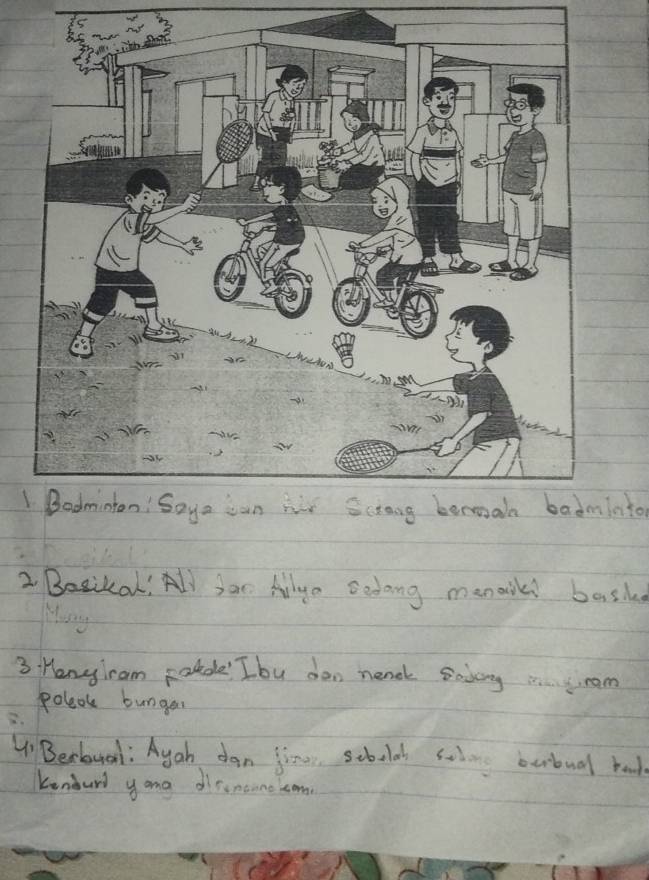 1 Badminton: Saya dan Air Sedang bermain badminton
2 Basikal: Ali dan Ailya sedang menaiki basikal
Meny
3. Menyiram pokok: Ibu dan nenek sedang menyiram
pokok bunga.
4. Berbual: Ayah dan jiran sebelah sedang berbual
kenduri yang dirancangkan.